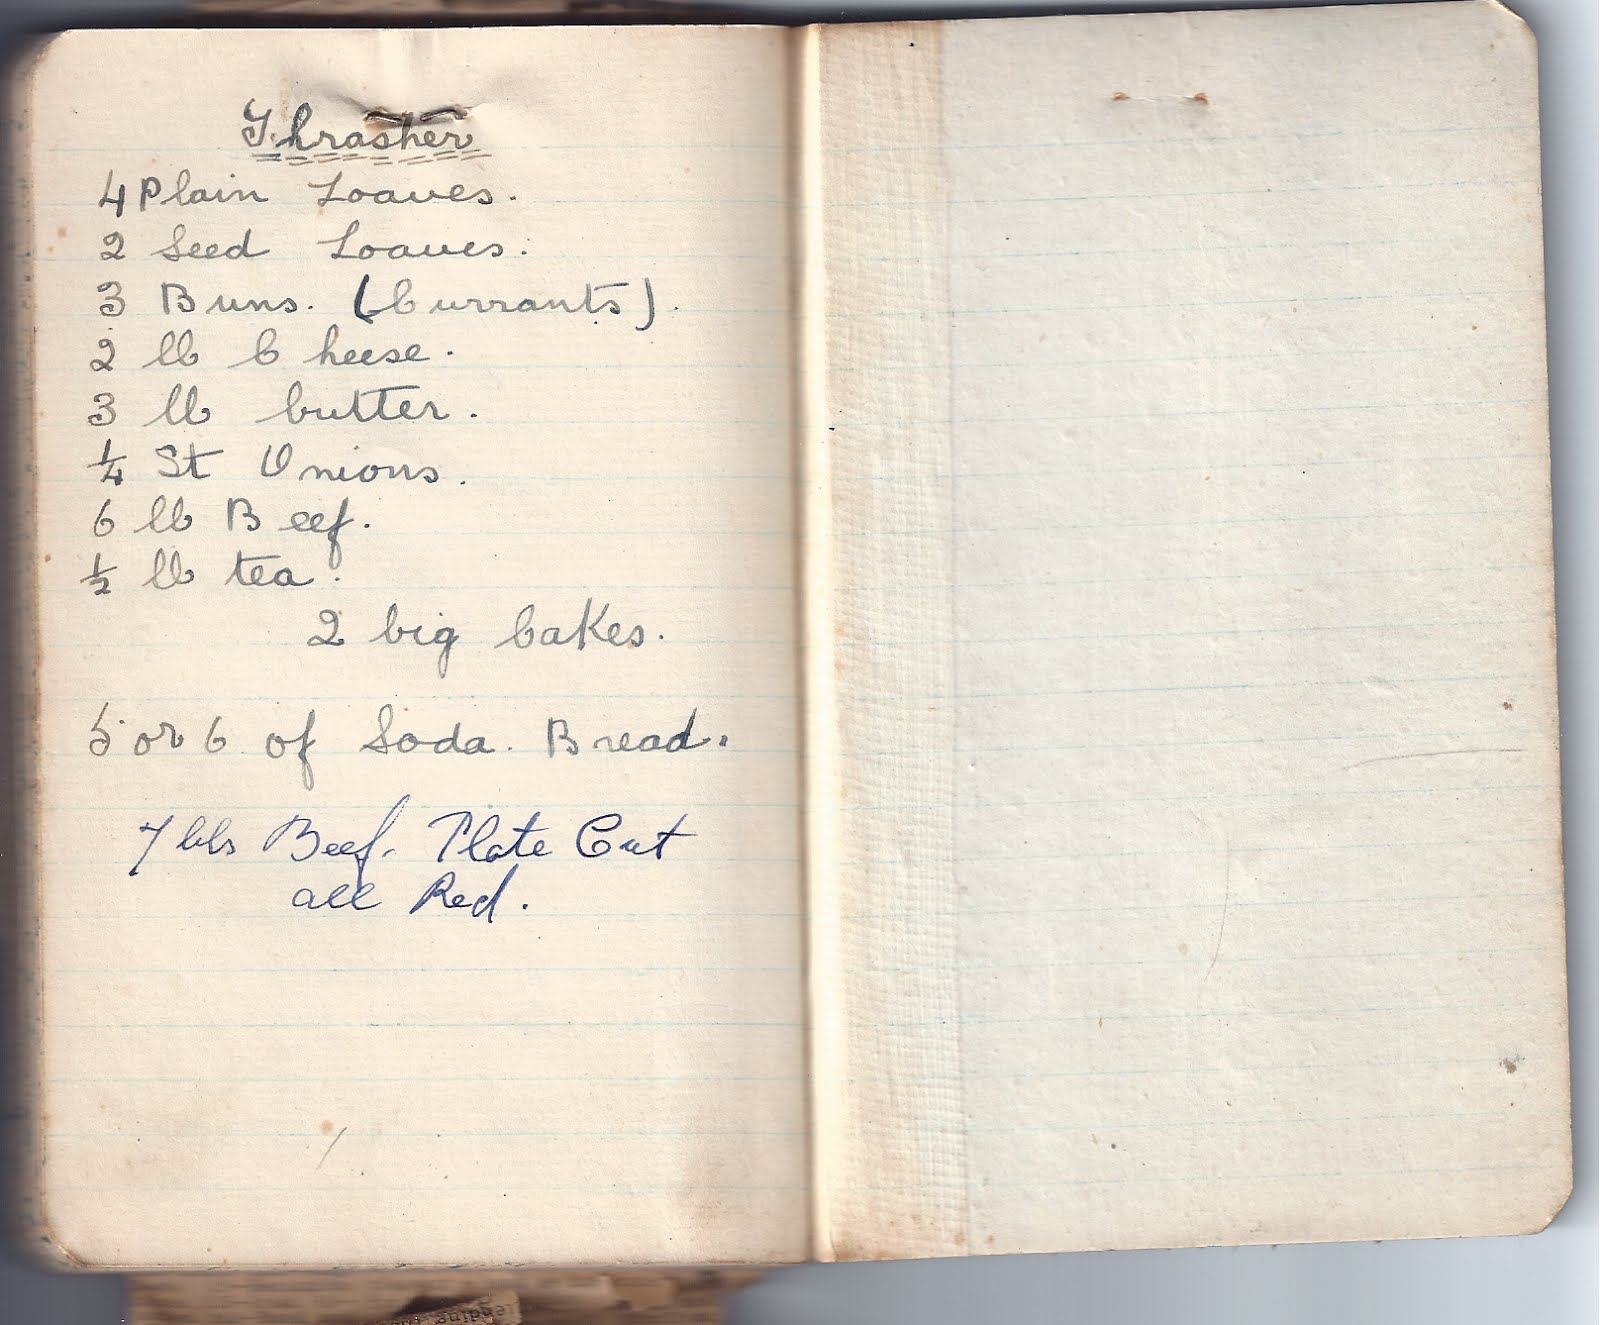 Thrasher
4 Plain Loaves.
2 Seed Loaves.
3 Buns. (Currants).
2 lb Cheese.
3 lb butter.
1/4 St Onions.
6 lb Beef.
1/2 lb tea.
2 big Cakes.
5 or 6 of Soda. Bread.
7 lbs Beef. Plate Cut
all Red.